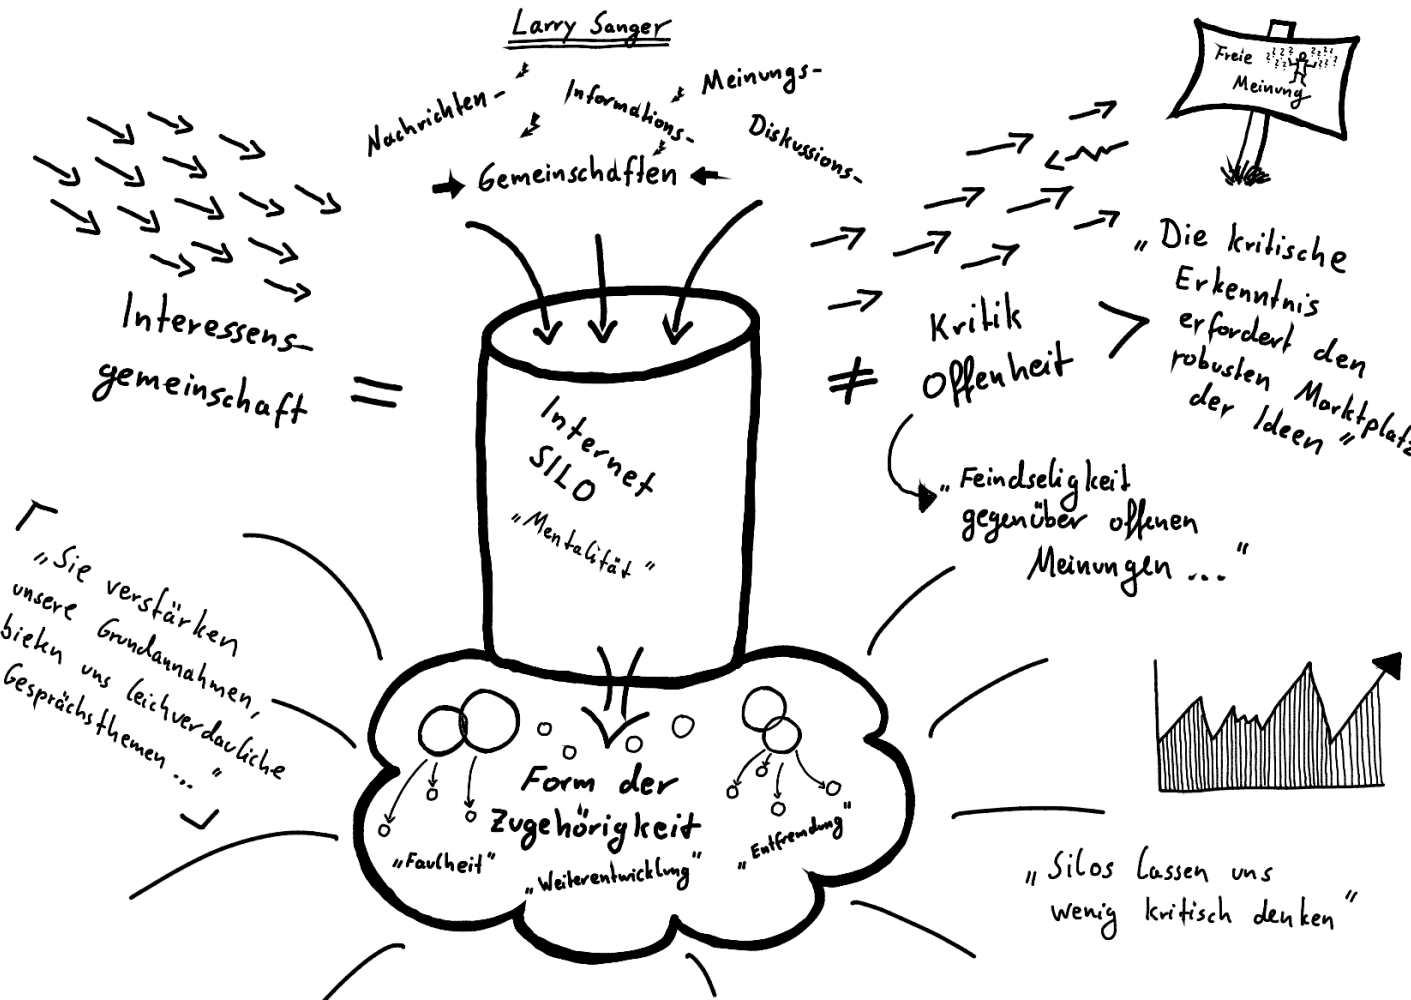 Larry Sanger
Nachrichten-
Informations-
Meinungs-
Diskussions-
Gemeinschaften
Freie
Meinung
Interessens-
gemeinschaft
=
Internet
SILO
„Mentalität"
≠
Kritik
offenheit
>
„Die kritische
Erkenntnis
erfordert den
robusten Marktplatz
der Ideen"
„Feindseligkeit
gegenüber offenen
Meinungen ..."
„Sie verstärken
unsere Grundannahmen,
bieten uns leichverdauliche
Gesprächsthemen ..."
Form der
Zugehörigkeit
„Faulheit"
„Weiterentwicklung"
„Entfremdung"
„Silos lassen uns
wenig kritisch denken"